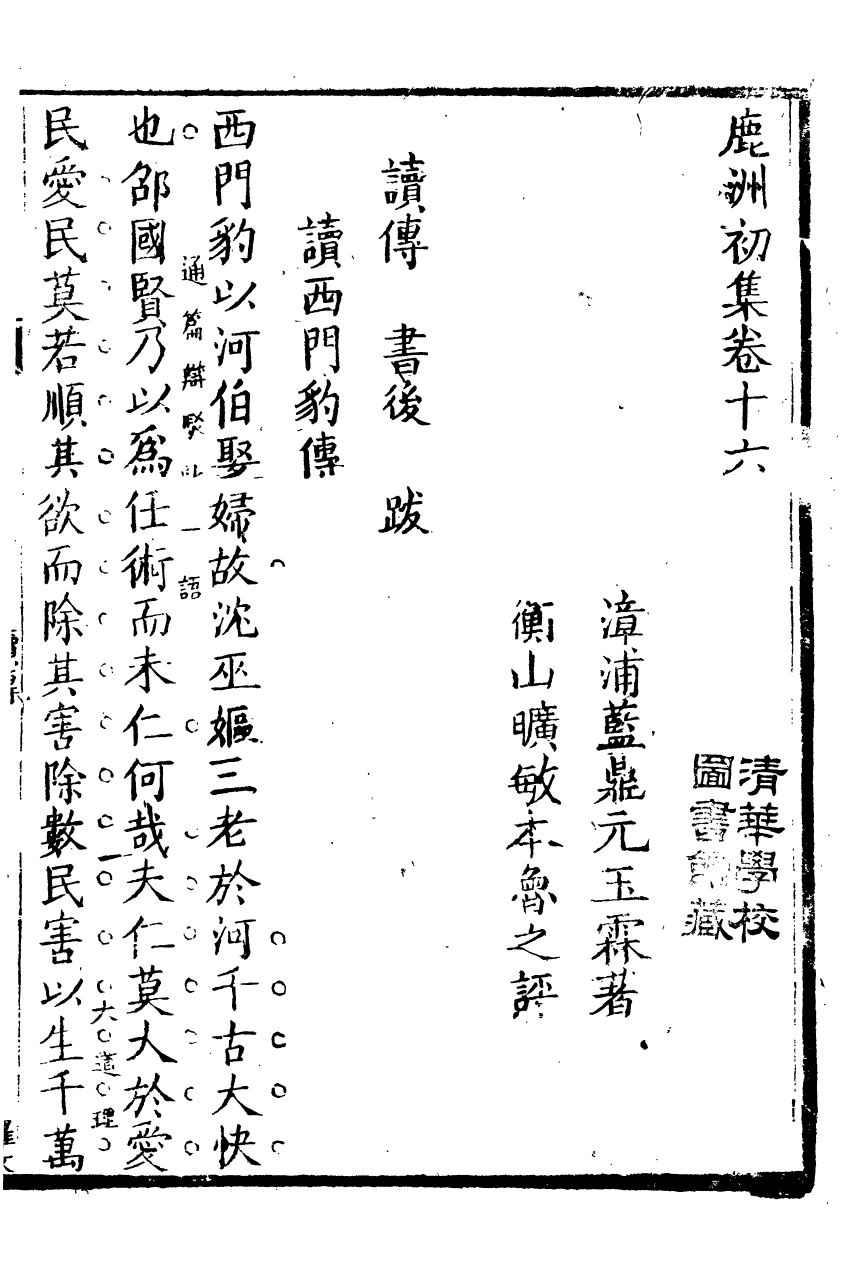 鹿洲初集卷十六
清華學校
圖書館藏
漳浦藍鼎元玉霖著
衡山曠敏本魯之評
讀傳　書後　跋
讀西門豹傳
西門豹以河伯娶婦故沈巫嫗三老於河千古大快
通篇辯駁止一語
也邵國賢乃以爲任術而未仁何哉夫仁莫大於愛
大道理
民愛民莫若順其欲而除其害除數民害以生千萬